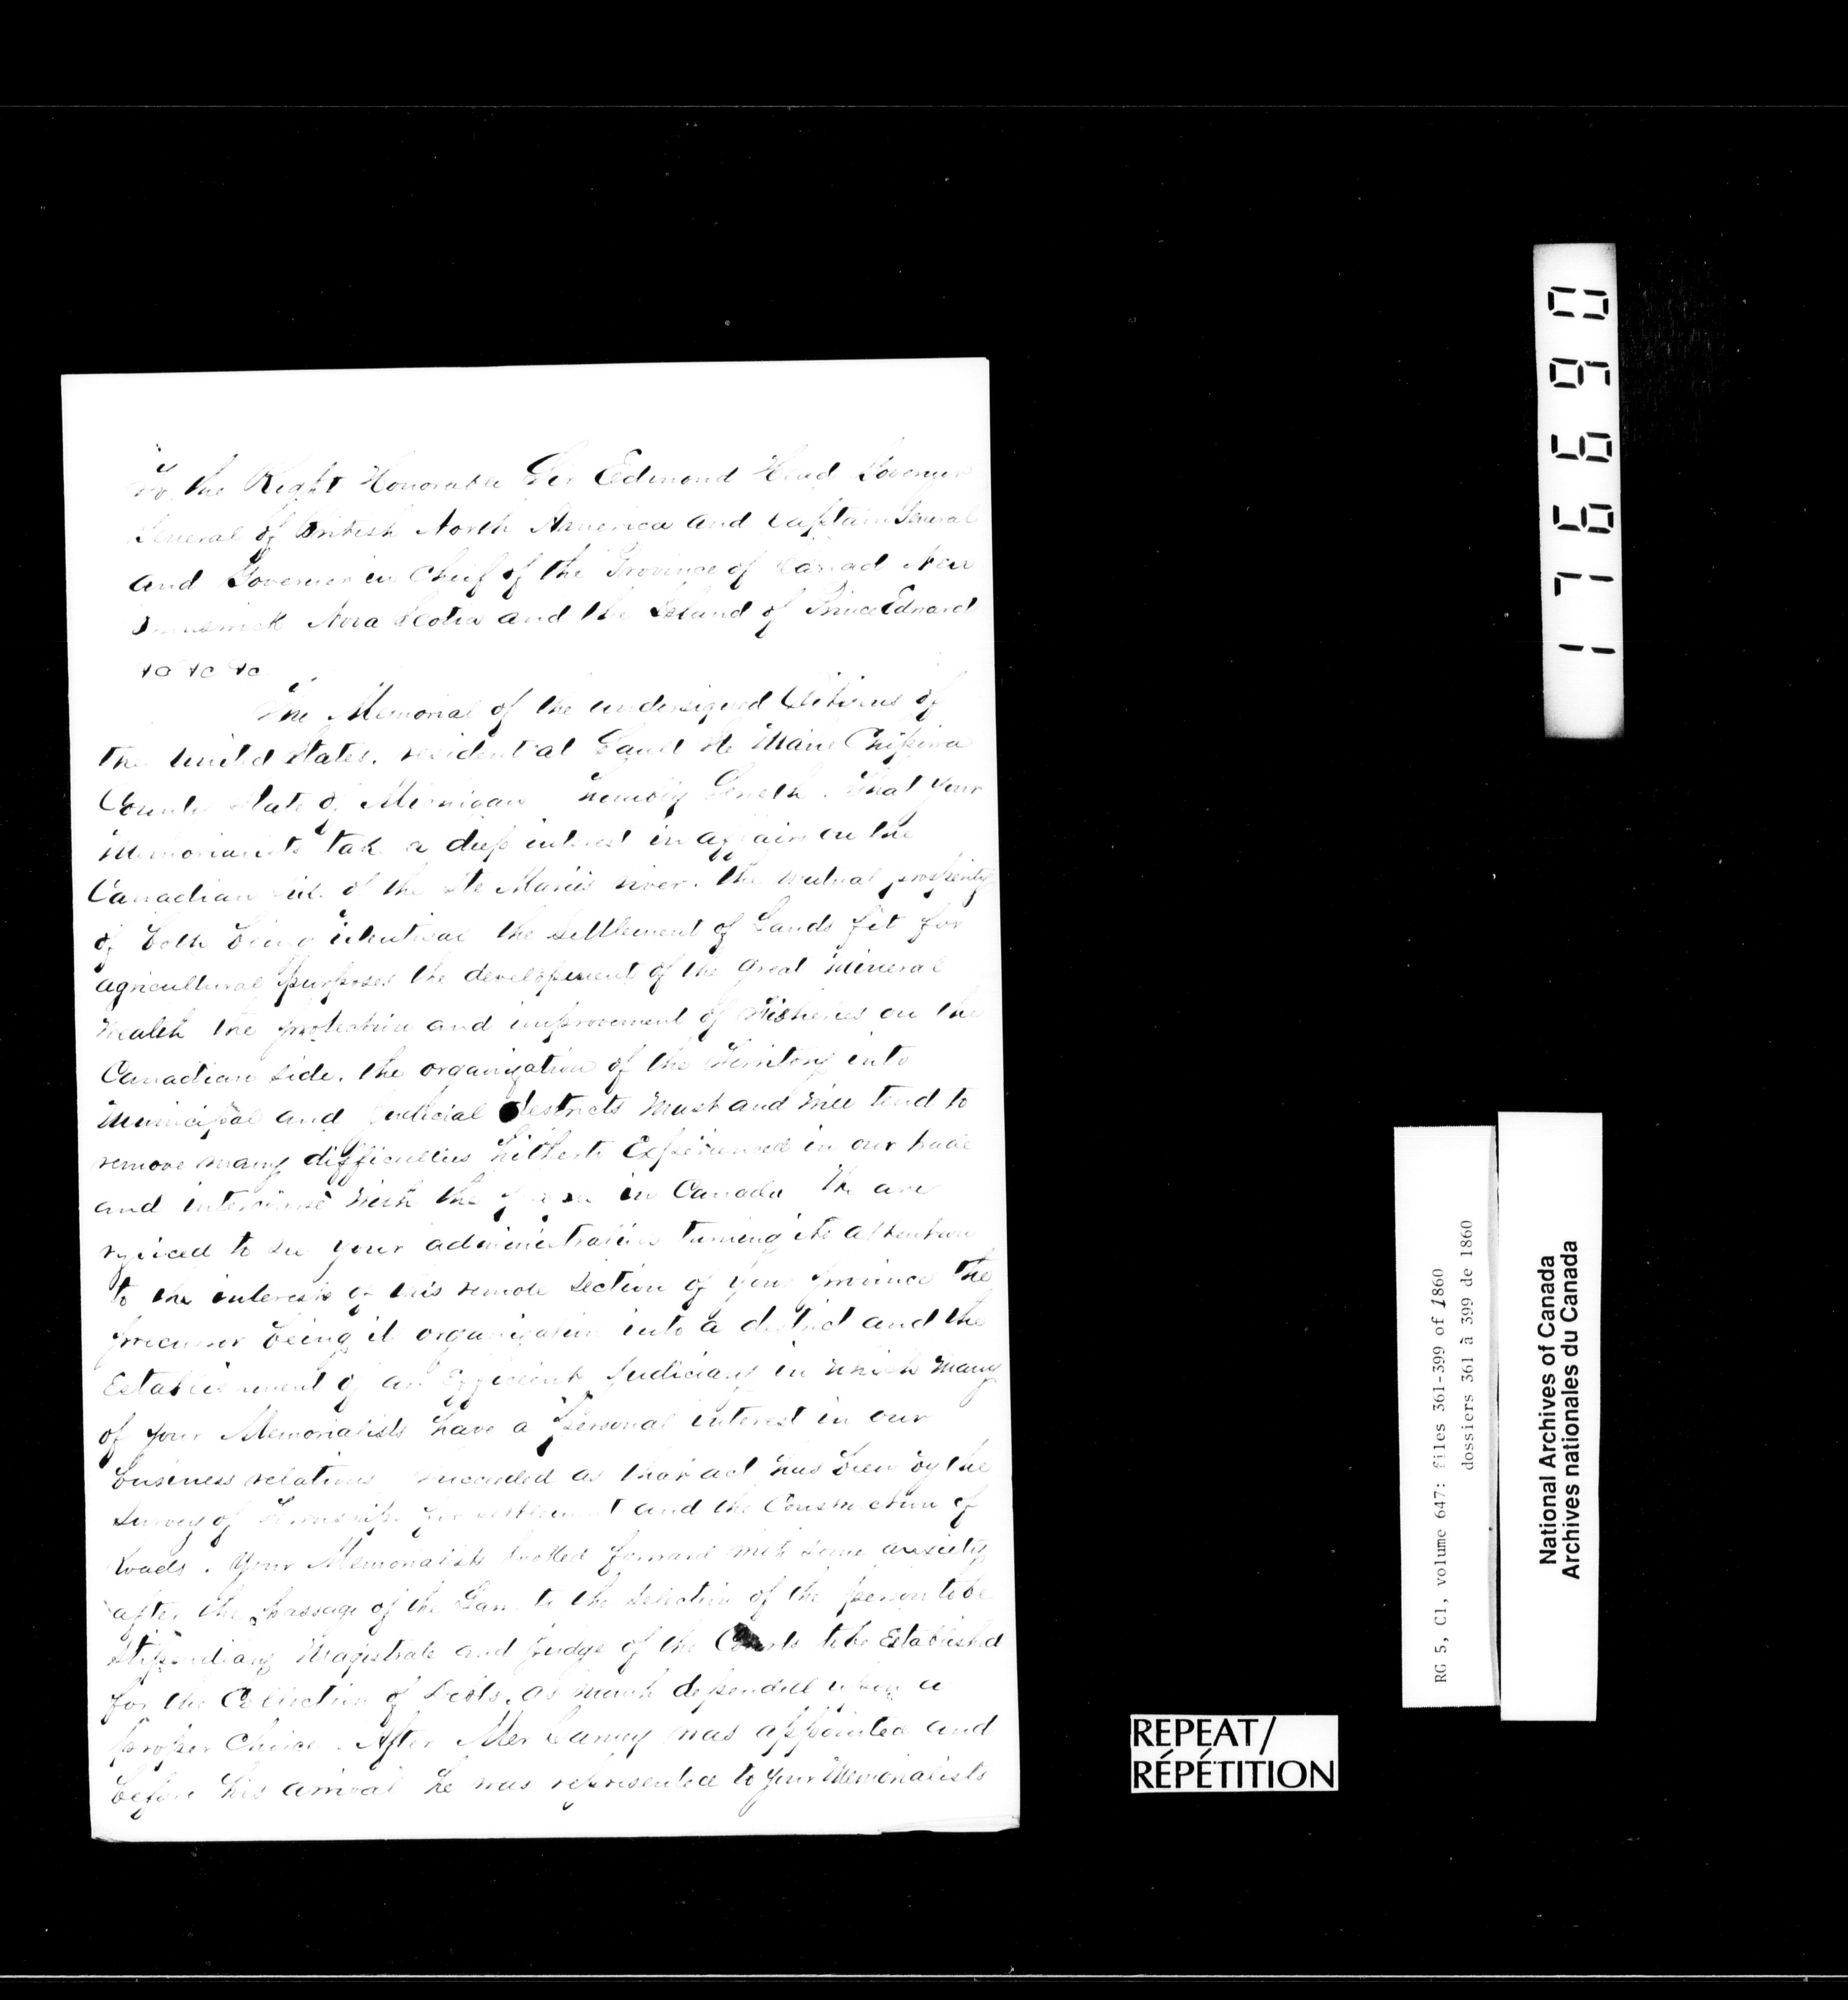 To the Right Honorable Sir Edmond Head Governer
General of British North America and Captain General
and Governer in Chief of the Province of Canad New
Brunswick Nova Scotia and the Island of Prince Edward
&c &c &c
The Memorial of the undersigned Citizens of
the United States, resident at Sault Ste Marie Chipewa
County State of Michigan humbly Sheweth. That your
Memorialists take a deep interest in affairs on the
Canadian side of the Ste Maries river. The mutual prosperity
of both being identical the settlement of Lands fit for
agricultural purposes the developement of the great mineral
wealth the protection and improvement of Fisheries on the
Canadian side, the organization of the Territory into
Municipal and Judicial destricts must and will tend to
remove many difficulties hitherto Experienced in our trade
and intercourse with the in Canada We are
rejoiced to see your administration turning its attention
to the interests of this remote section of your province The
precursor being it organization into a district and the
Establishment of an Efficient Judiciary in which many
of your Memorialists have a personal interest in our
business relations, succeeded as that act has been by the
survey of Townships for settlement and the Construction of
Roads. Your Memorialists looked forward with some anxiety
after the passage of the Law to the selection of the person to be
Stipendiary Magistrate and Judge of the Courts to be Established
for the Collection of Debts, as much depended upon a
proper Choice. After Mer Carney was appointed and
before his arrival he was represented to your Memorialists
176690
RG 5, C1, volume 647: files 361-399 of 1860
dossiers 361 à 399 de 1860
National Archives of Canada
Archives nationales du Canada
REPEAT/
RÉPÉTITION